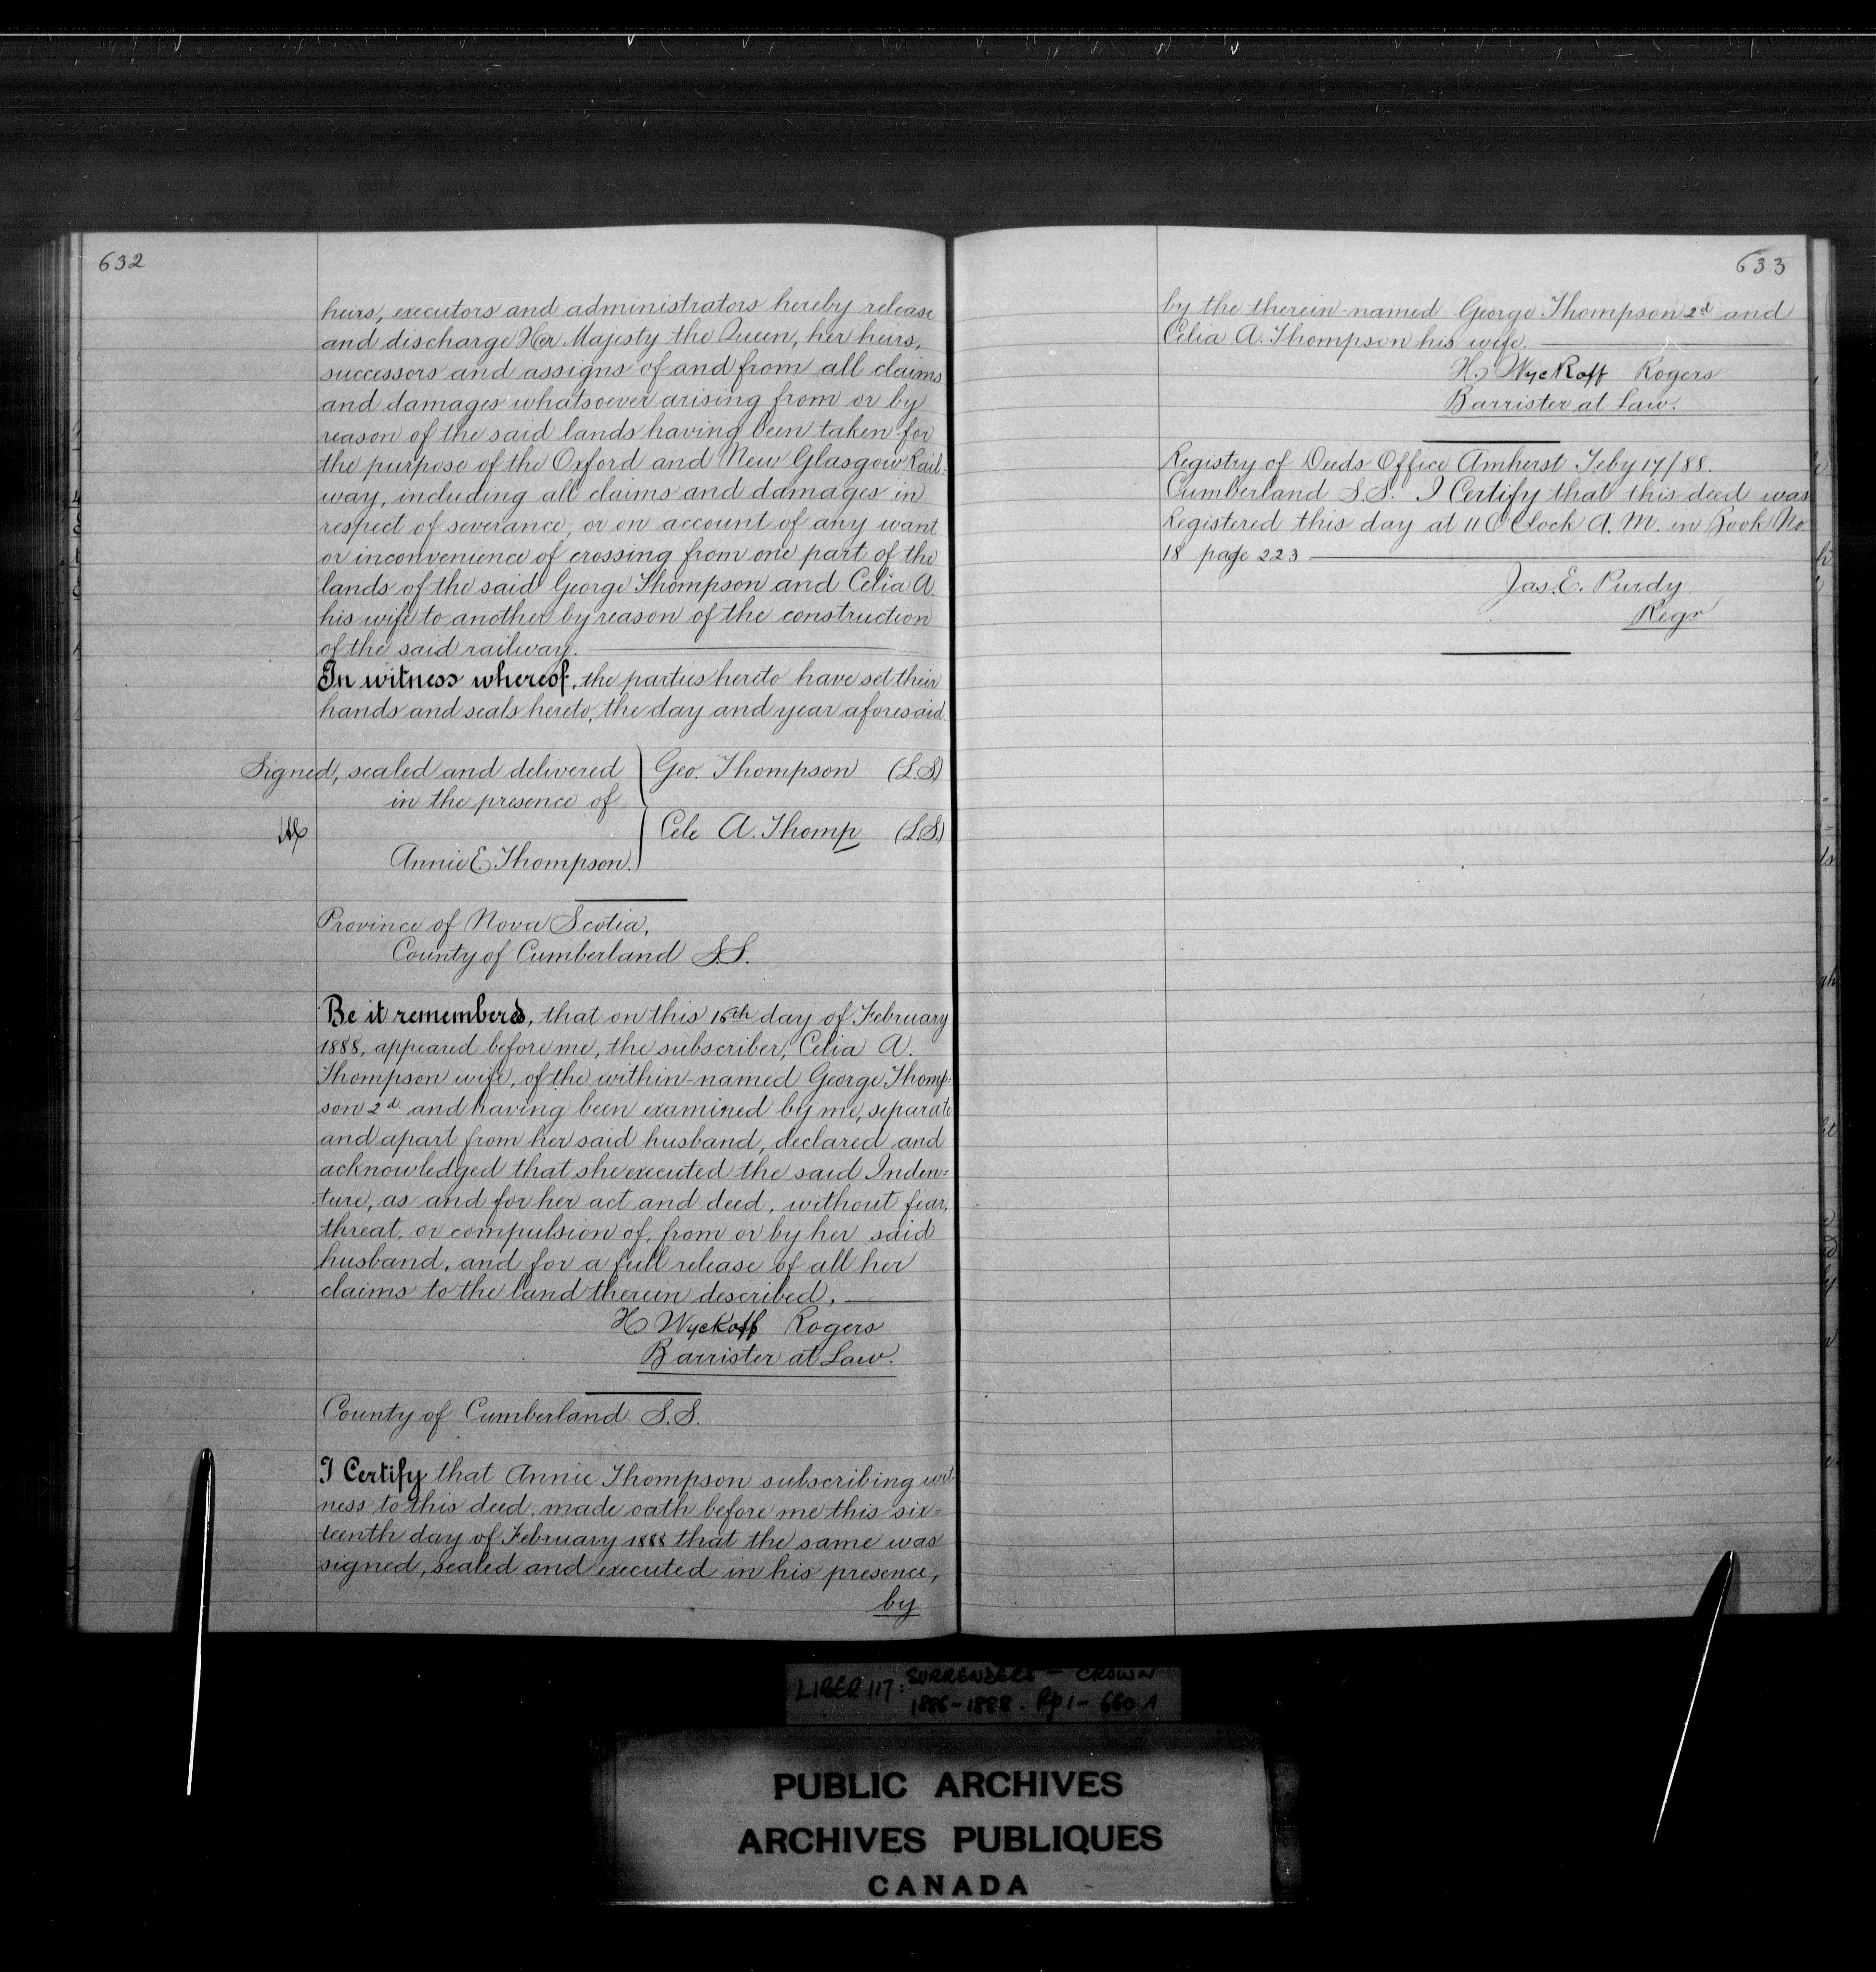 632
heirs, executors and administrators hereby release
and discharge Her Majesty the Queen, her heirs,
successors and assigns of and from all claims
and damages whatsoever arising from or by
reason of the said lands having been taken for
the purpose of the Oxford and New Glasgow Rail-
way, including all claims and damages in
respect of severance, or on account of any want
or inconvenience of crossing from one part of the
lands of the said George Thompson and Celia A.
his wife to another by reason of the construction
of the said railway.
In witness whereof, the parties hereto have set their
hands and seals hereto, the day and year aforesaid.
Signed, sealed and delivered
in the presence of
Annie E. Thompson.
Geo. Thompson (L.S)
Cele A. Thomp (L.S.)
Province of Nova Scotia,
County of Cumberland S.S.
Be it remembered, that on this 16th day of February
1888, appeared before me, the subscriber, Celia A.
Thompson wife, of the within-named George Thomp-
son 2d and having been examined by me, separate
and apart from her said husband, declared and
acknowledged that she executed the said Inden=
ture, as and for her act and deed, without fear,
threat, or compulsion of, from or by her said
husband, and for a full release of all her
claims to the land therein described.
H Wyckoff Rogers
Barrister at Law.
County of Cumberland S.S.
I Certify that Annie Thompson subscribing wit
ness to this deed, made oath before me this six=
teenth day of February 1888 that the same was
signed, sealed and executed in his presence,
by
633
by the therein-named George Thompson 2d and
Celia A. Thompson his wife.
H. Wyckoff Rogers
Barrister at Law.
Registry of Deeds Office Amherst Feby 17/88.
Cumberland S.S. I Certify that this deed was
Registered this day at 11 O'Clock A.M. in Book No
18 page 223
Jas. E. Purdy
Regr
LIBER 117: SURRENDERS - CROWN
1886-1888. Pp 1-660A
PUBLIC ARCHIVES
ARCHIVES PUBLIQUES
CANADA